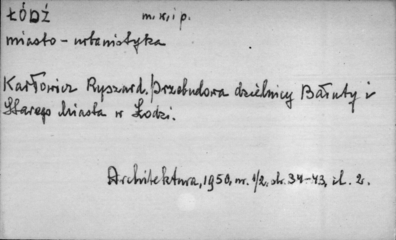 ŁÓDŹ m. k, i p.
miasto - urbanistyka
Karłowicz Ryszard. Przebudowa dzielnicy Bałuty i
Starego Miasta w Łodzi.
Architektura, 1950, nr. 1/2, str. 34-43, il. 2.